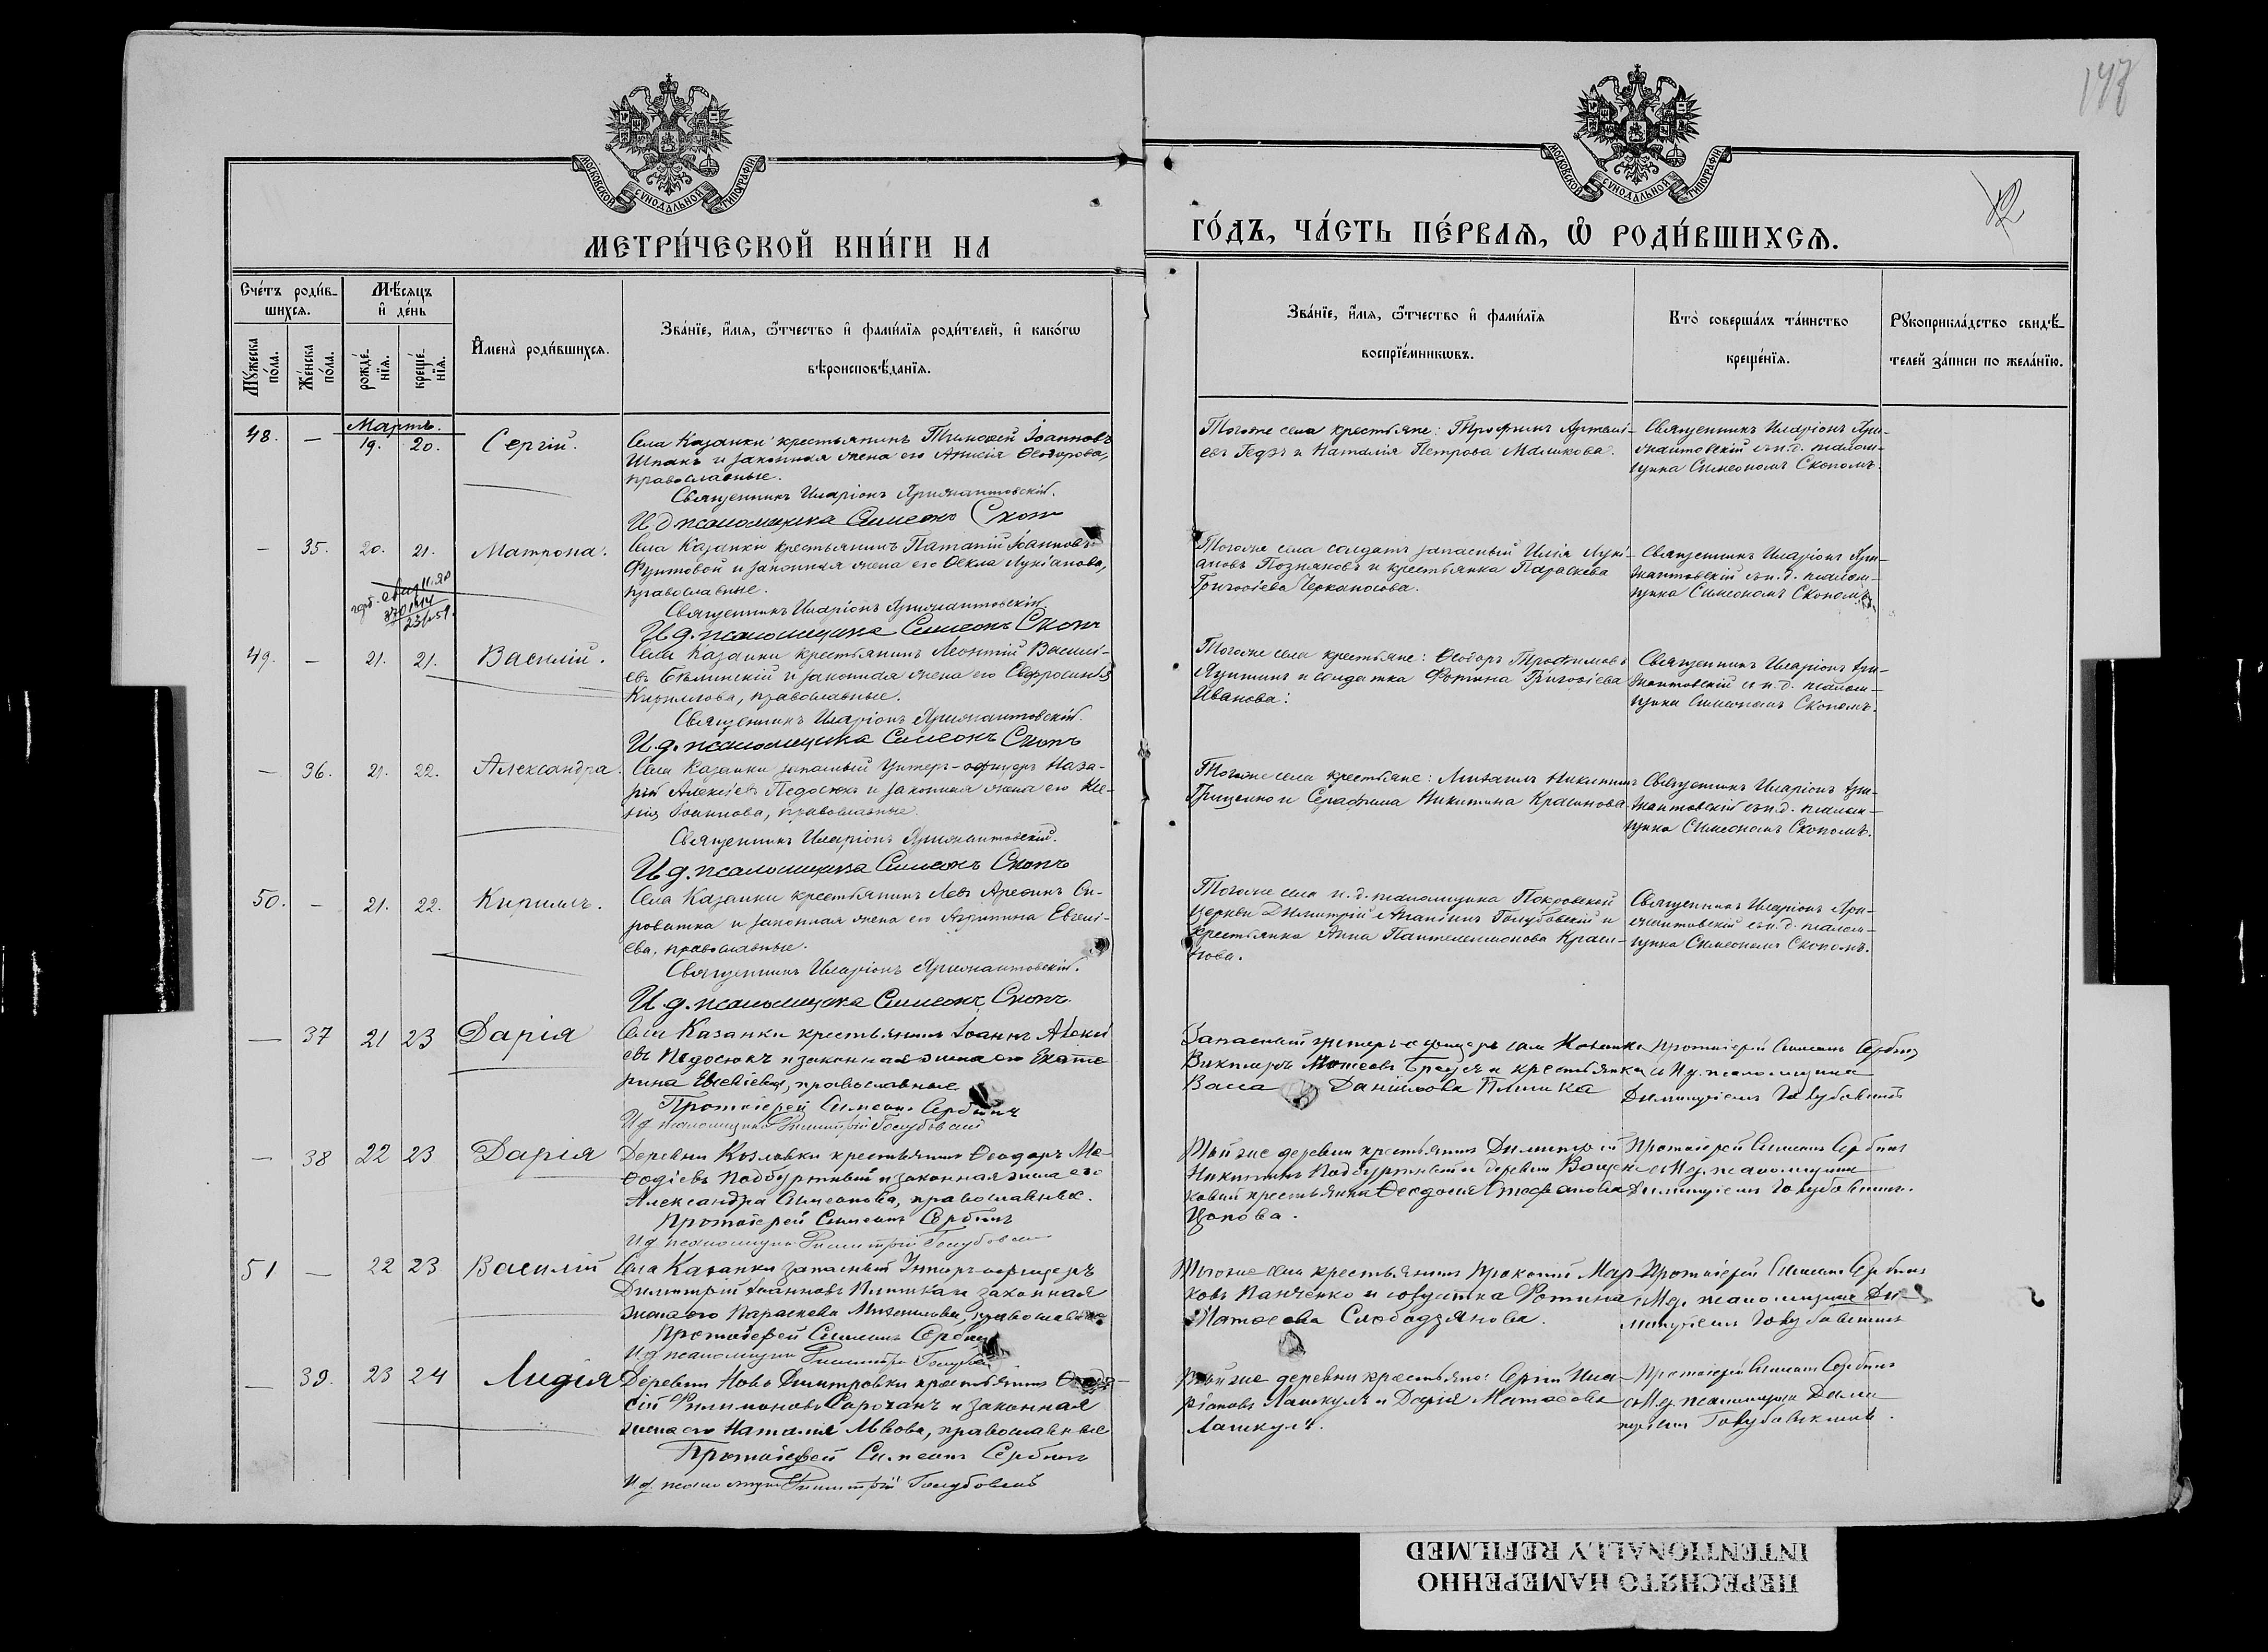 148
МОСКОВСКОЙ СѴНОДАЛЬНОЙ ТИПОГРАФІИ
МОСКОВСКОЙ СѴНОДАЛЬНОЙ ТИПОГРАФІИ
МЕТРИ́ЧЕСКОЙ КНИ́ГИ НА
ГО́ДЪ, ЧА́СТЬ ПЕ́РВАѦ, Ѽ РОДИ́ВШИХСѦ.
Сче́тъ роди́в-
шихсѧ.
Мꙋ́жеска по́ла.
Же́нска по́ла.
Мѣ́сѧцъ и҆ де́нь
рожде́-нїѧ.
креще́-нїѧ.
И҆мена̀ роди́вшихсѧ.
Зва́нїе, и҆́мѧ, ѻ҆́тчество и҆ фами́лїѧ роди́телей, и҆ како́гѡ
вѣ́роисповѣ́данїѧ.
Зва́нїе, и҆́мѧ, ѻ҆́тчество и҆ фами́лїѧ
воспрїе́мникѡвъ.
Кто̀ соверша́лъ та́инство
креще́нїѧ.
Рꙋкоприкла́дство свидѣ́-
телей за́писи по жела́нїю.
Мартъ.
48. — 19. 20. Сергій.
Села Казанки крестьянинъ Тимоѳей Іоанновъ
Шпакъ и законная жена его Анисія Ѳеодорова,
православные.
Священникъ Иларіонъ
И д псаломщика Симеонъ Скопъ
Тогоже села крестьяне: Трофимъ Артемі-
евъ и Наталія Петрова Маликова.
Священникъ Иларіонъ
съ и.д. псалом-
щика Симеономъ Скопомъ.
— 35. 20. 21. Матрона.
Села Казанки крестьянинъ Патапій Іоанновъ
и законная жена его Ѳекла Лукіанова,
православные.
Священникъ Иларіонъ
И д. псаломщика Симеонъ Скопъ
Тогоже села солдатъ запасный Илія Лукі-
ановъ Позняковъ и крестьянка Параскева
Григоріева
Священникъ Иларіонъ
съ и.д. псалом-
щика Симеономъ Скопомъ.
49. — 21. 21. Василій.
Села Казанки крестьянинъ Леонтій Василі-
евъ и законная жена его Евфросинія
Кириллова, православные.
Священникъ Иларіонъ
И д. псаломщика Симеонъ Скопъ
Тогоже села крестьяне: Ѳеодоръ Трофимовъ
и солдатка Фотина Григоріева
Иванова.
Священникъ Иларіонъ
съ и.д. псалом-
щика Симеономъ Скопомъ.
— 36. 21. 22. Александра.
Села Казанки запасный унтеръ-офицеръ Наза-
рій Алексіевъ Педосюкъ и законная жена его Ксе-
нія Іоаннова, православные.
Священникъ Иларіонъ
И д. псаломщика Симеонъ Скопъ
Тогоже села крестьяне: Михаилъ Никитинъ
Гриценко и Серафима Никитина Красинова.
Священникъ Иларіонъ
съ и.д. псалом-
щика Симеономъ Скопомъ.
50. — 21. 22. Кириллъ.
Села Казанки крестьянинъ Левъ Арефинъ Си-
роватка и законная жена его Евгені-
ева, православные.
Священникъ Иларіонъ
И д. псаломщика Симеонъ Скопъ
Тогоже села и.д. псаломщика Покровской
церкви Димитрій Голубовскій и
крестьянка Анна Пантелеимонова Краси-
нова.
Священникъ Иларіонъ
съ и.д. псалом-
щика Симеономъ Скопомъ.
— 37 21 23 Дарія
Села Казанки крестьянинъ Іоаннъ Алексі
евъ Педосюкъ и законная жена его Екате
рина Евсевіева, православные
Протоіерей Симеонъ Сербинъ
И д псаломщика Димитрій Голубовскій
Запасный унтеръ-офицеръ села Казанки
Викторъ и крестьянка
Васса Даніилова Плишка
Протоіерей Симеонъ Сербинъ
съ И д. псаломщика
Димитріемъ Голубовскимъ
— 38 22 23 Дарія
Деревни Козловки крестьянинъ Ѳеодоръ Ме-
ѳодіевъ Подбуртный и законная жена его
Александра Симеонова, православные.
Протоіерей Симеонъ Сербинъ
И д псаломщика Димитрій Голубовскій
Той же деревни крестьянинъ Димитрій
Никитинъ Подбуртный и деревни
крестьянка Ѳеодосія Стефанова
Цопова.
Протоіерей Симеонъ Сербинъ
съ И д. псаломщика
Димитріемъ Голубовскимъ.
51 — 22 23 Василій
Села Казанки запасный Унтеръ-офицеръ
Димитрій Іоанновъ Плишка и законная
жена его Параскева Михаилова, православные
Протоіерей Симеонъ Сербинъ
И д псаломщика Димитрій Голубовскій
Того же села крестьянинъ Прокопій Мар-
ковъ Панченко и солдатка Фотина
Матѳеева Слободзянова.
Протоіерей Симеонъ Сербинъ
съ И д. псаломщика Ди-
митріемъ Голубовскимъ
— 39. 23 24 Лидія
Деревни Ново Димитровки крестьянинъ
Филимоновъ Сорочанъ и законная
жена его Наталія Львова, православные
Протоіерей Симеонъ Сербинъ
И д. псаломщика Димитрій Голубовскій
Той же деревни крестьяне Сергій Ила-
ріоновъ Лашкулъ и Дарія Матѳеева
Лашкулъ.
Протоіерей Симеонъ Сербинъ
съ И д. псаломщика Дими
тріемъ Голубовскимъ.
ПЕРЕСНЯТО НАМЕРЕННО
INTENTIONALLY REFILMED